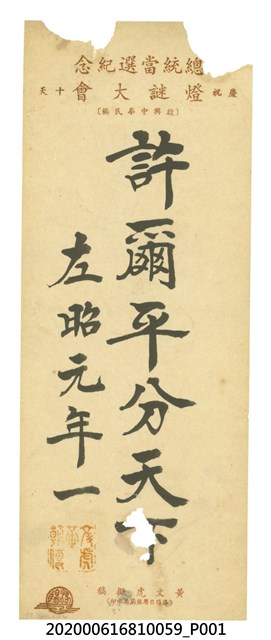 總統當選紀念
慶祝 燈謎大會 十天
興中華民
許爾平分天下
左昭元年一
黃文虎擬稿
202000616810059_P001